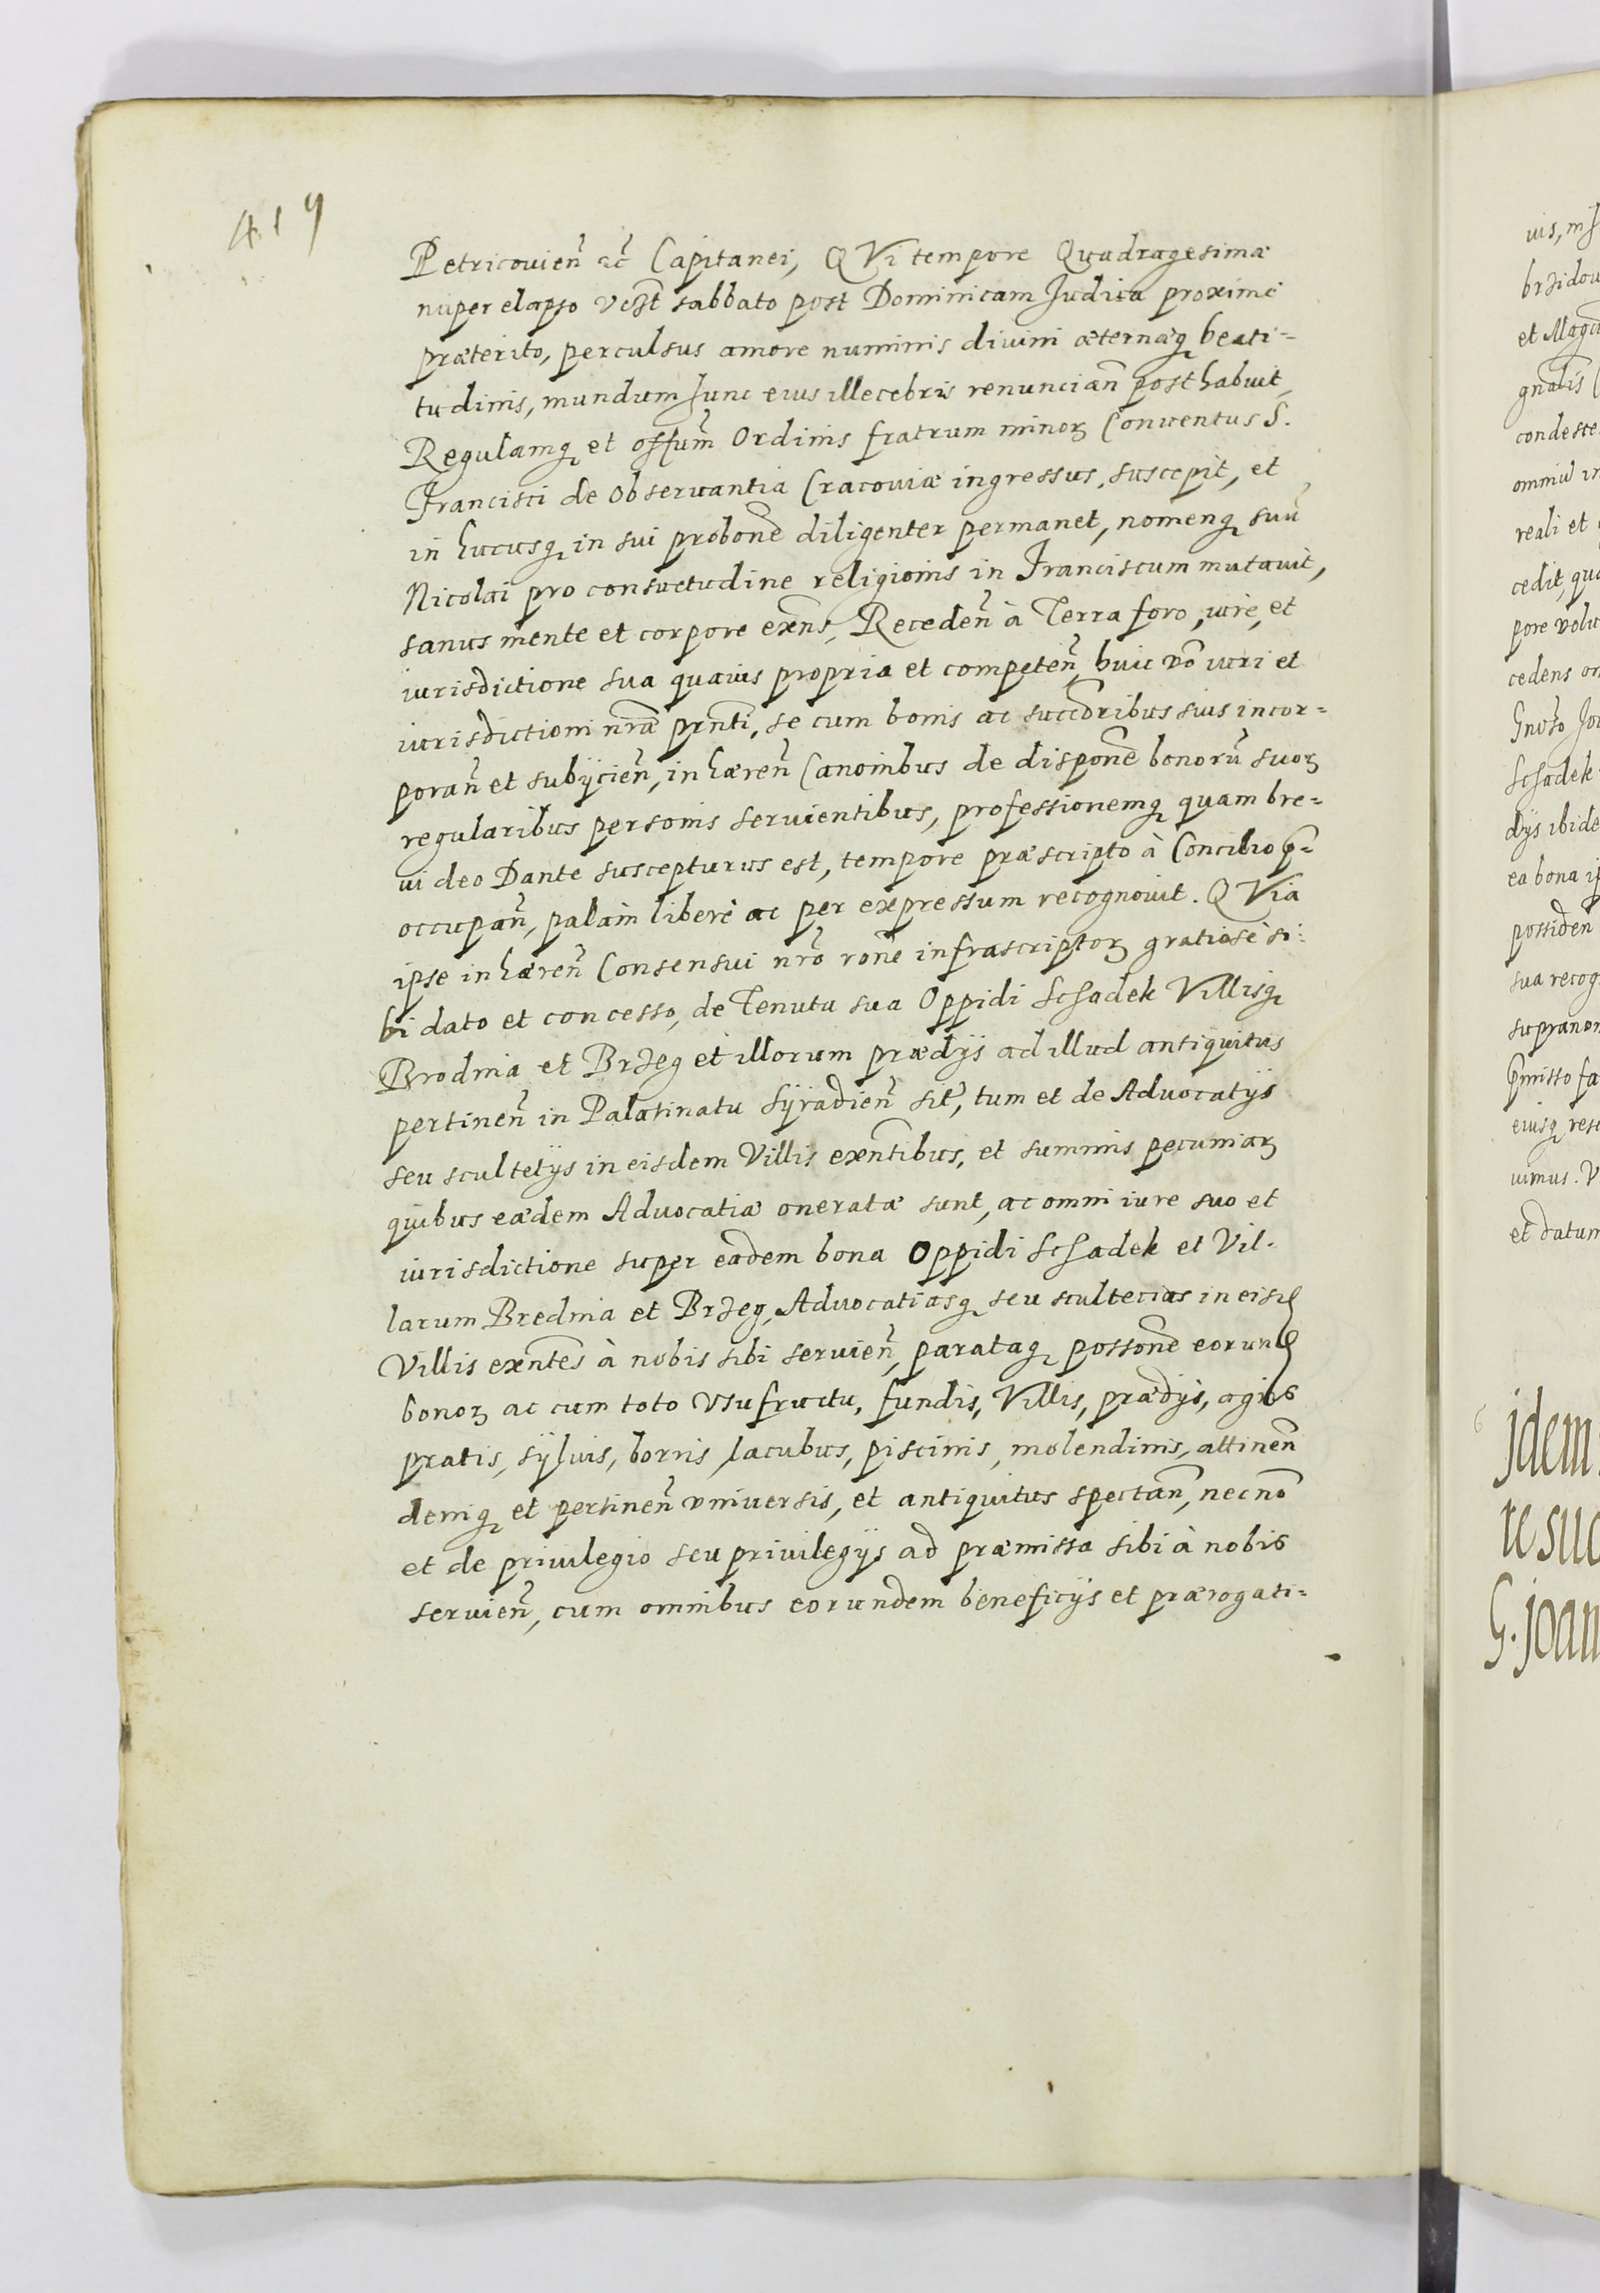 419
Petricovien̄ ac̄ Capitanei, QVi tempore Quadragesimæ
nuper elapso vcȝt sabbato post Dominicam Judica proximè
præterito, perculsus amore numinis divini æternæq beati=
tudinis, mundum hunc eius illecebris renuncian̄ posthabuit,
Regulamq et offum̄ Ordinis fratrum minoꝝ Conventus S.
Francisci de Observantia Cracoviæ ingressus, suscepit, et
in hucusq in sui probone diligenter permanet, nomenq suū
Nicolai pro consuetudine religionis in Franciscum mutavit,
sanus mente et corpore exn̄s, Receden̄ à Terra foro, iure, et
iurisdictione sua quavis propria et competen̄, huic vō iuri et
iurisdictioni nr̄a prn̄ti, se cum bonis ac succōribus suis incor=
poran̄ et subijcien̄, inhæren̄ Canonibus de dispone bonorū suoꝝ
regularibus personis servientibus, professionemq quam bre=
vi deo Dante suscepturus est, tempore præscripto à Concilio p̄=
occupan̄, palàm liberè ac per expressum recognovit. QVia
ipse inhæren̄ Consensui nr̄o rone infrascriptoꝝ gratiosè si=
bi dato et concesso, de Tenuta sua Oppidi Schadek Villisq
Brodnia et Brzeg et illorum prædijs ad illud antiquitus
pertinen̄ in Palatinatu Syradien̄ sit̄, tum et de Advocatijs
seu scultetijs in eisdem Villis exn̄tibus, et summis pecuniaꝝ
quibus eædem Advocatiæ oneratæ sunt, ac omni iure suo et
iurisdictione super eadem bona Oppidi Schadek et Vil=
larum Brednia et Brzeg, Advocatiasq seu scultecias in eisd
Villis exn̄tes à nobis sibi servien̄, parataq possone eorund
bonoꝝ ac cum toto Vsufructu, fundis, Villis, prædijs, agris
pratis, sylvis, borris, lacubus, piscinis, molendinis, attinen̄
deniq et pertinen̄ vniversis, et antiquitus spectan̄, necnō
et de privilegio seu privilegijs ad præmissa sibi à nobis
servien̄, cum omnibus eorundem beneficijs et prærogati=
brzidov
et Magd
gnalis
condesce
omniū in
reali et
cedit, qua
pore volu
cedens om
Schadek
dijs ibide
ea bona ip
possiden
sua recog
supranom
p̄misso fa
eiusq resi
uimus. V
et datum
Jdem
te suc
G. Joan